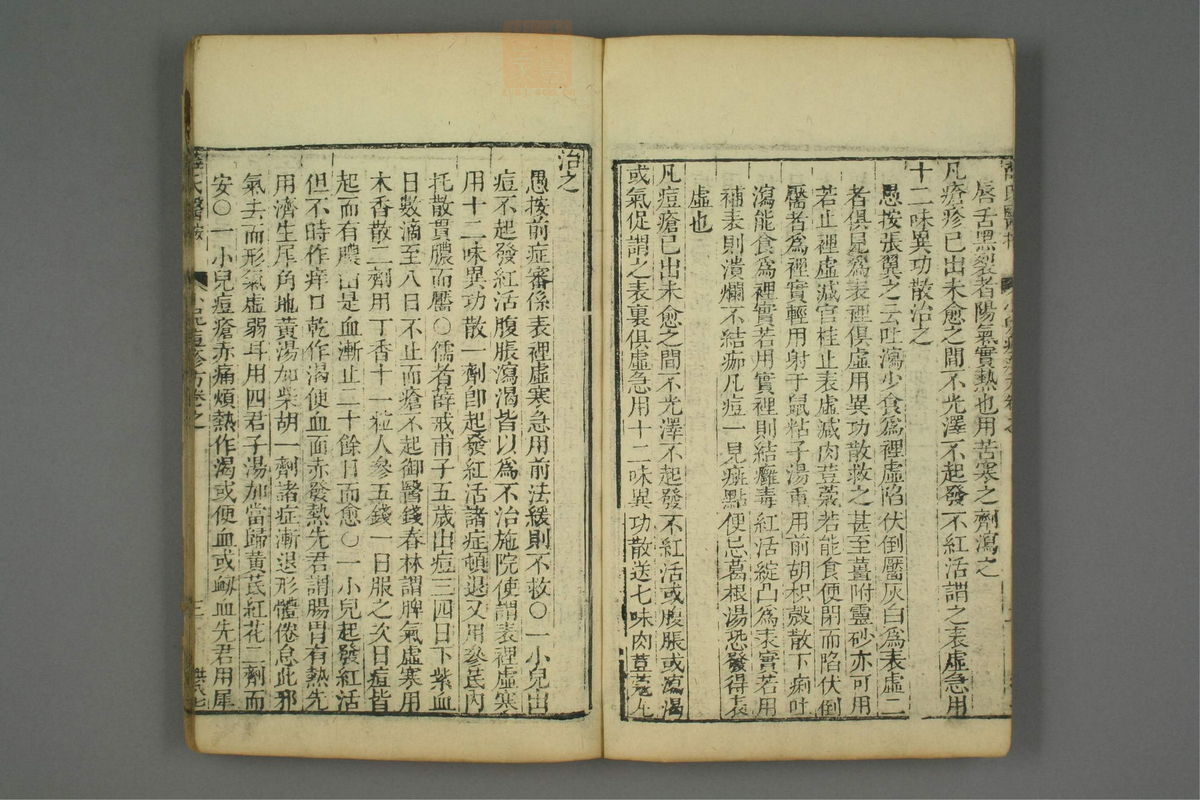 唇舌黑裂者陽氣實熱也用苦寒之劑瀉之
凡瘡疹已出未愈之間不光澤不起發不紅活謂之表虛急用
十二味異功散治之
愚按張翼之云吐瀉少食爲裡虛陷伏倒靨灰白爲表虛二
者俱見爲表裡俱虛用異功散救之甚至薑附靈砂亦可用
若止裡虛減官桂止表虛減肉荳蔻若能食便閉而陷伏倒
靨者爲裡實輕用射干鼠粘子湯重用前胡枳殻散下痢吐
瀉能食爲裡實若用實裡則結癰毒紅活綻凸爲表實若用
補表則潰爛不結痂凡痘一見癍點便忌葛根湯恐發得表
虛也
凡痘瘡已出未愈之間不光澤不起發不紅活或腹脹或瀉渴
或氣促謂之表裏俱虛急用十二味異功散送七味肉荳蔻丸
治之
愚按前症審係表裡虛寒急用前法緩則不救○一小兒出
痘不起發紅活腹脹瀉渴皆以爲不治施院使謂表裡虛寒
用十二味異功散一劑卽起發紅活諸症頓退又用參芪內
托散貫膿而靨○儒者薛戒甫子五歲出痘三四日下紫血
日數滴至八日不止而瘡不起御醫錢春林謂脾氣虛寒用
木香散二劑用丁香十一粒人參五錢一日服之次日痘皆
起而有膿由是血漸止二十餘日而愈○一小兒起發紅活
但不時作痒口乾作渴便血面赤發熱先君謂腸胃有熱先
用濟生犀角地黃湯加柴胡一劑諸症漸退形體倦怠此邪
氣去而形氣虛弱耳用四君子湯加當歸黃芪紅花二劑而
安○一小兒痘瘡赤痛煩熱作渴或便血或衂血先君用犀
薛氏醫按
小兒痘疹方卷之
三